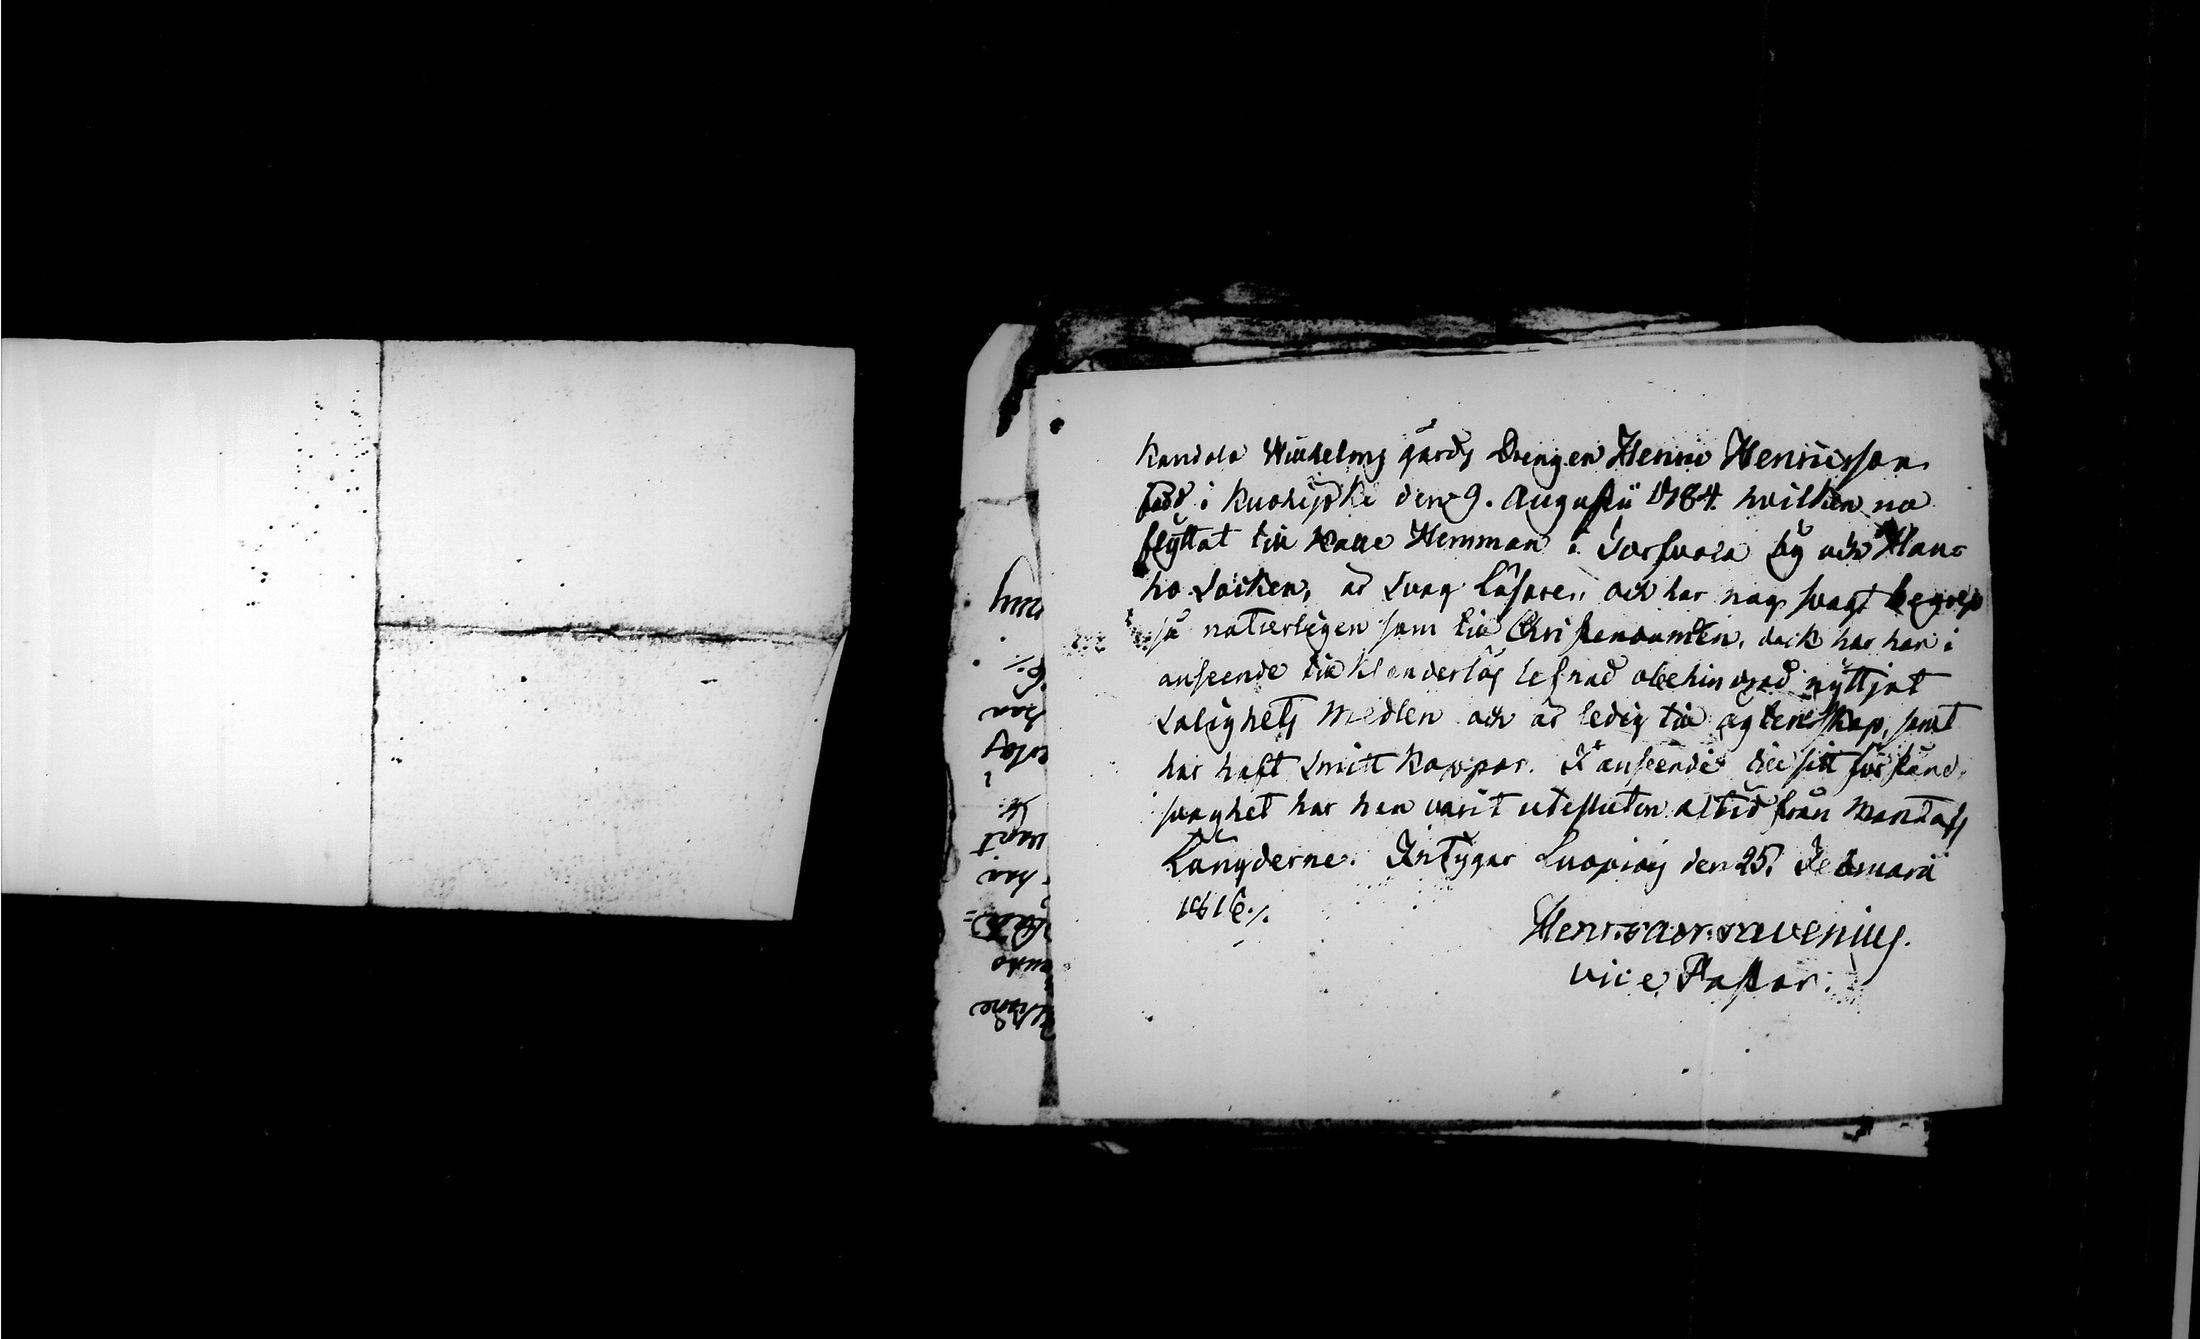 Kandola Windelms gårds Drengen Henric Henricsson
född i Kuohijoki den 9. Augusti 1784. hvilken nu
flyttat till Hemman i Torfvola by och Hau-
ho Socken, är svag läsare, och har nog svagt begrep
så naturligen som till Christendomen, dock har han i
anseende till klanderlös lefnad obehindrad nyttjat
Salighets Medlen och är ledig till ägtenskap, samt
har haft Smitt Koppor. I anseende till sitt förstånds
svaghet har han varit utesluten altid från Mantals
Längderne. Intygar Luopiois den 25. Februarii
1816./.
Henr.
vice Pastor.